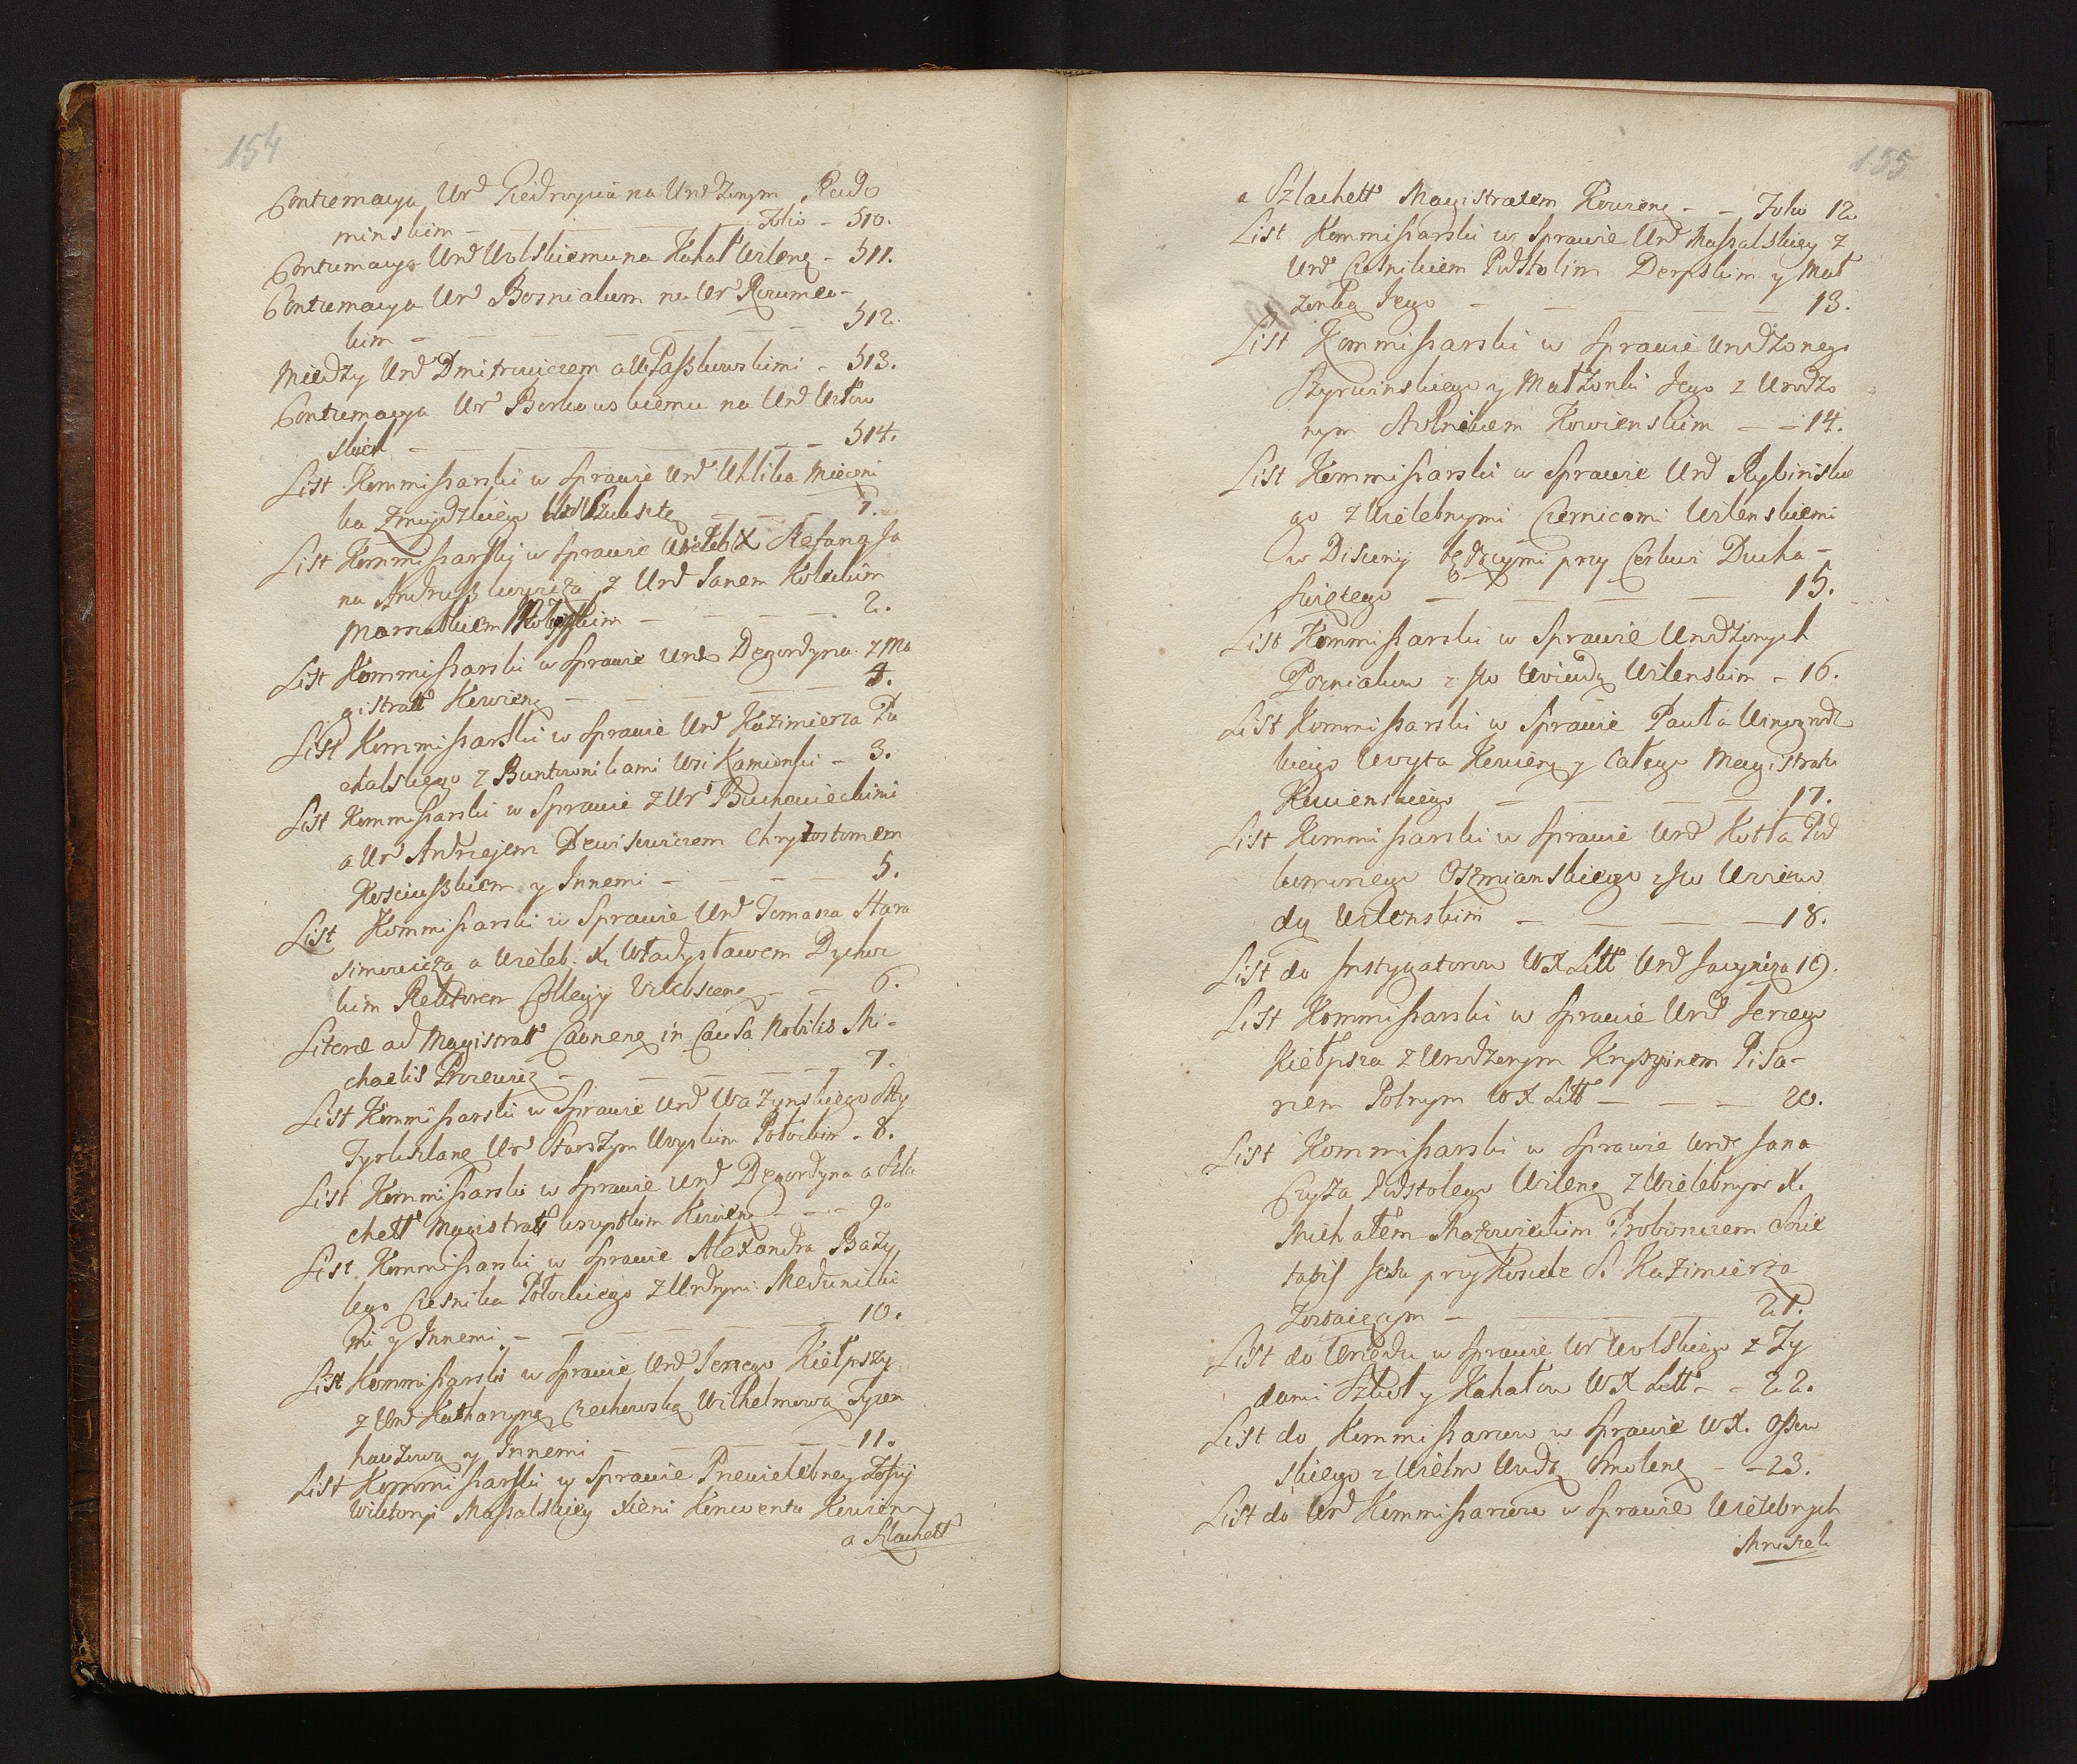 154
Contumacya Urd Giedroycia na Urodzonym Rado
minskim - Folio - 510.
Contumacya Urd Wolskiemu na Kahał Wilenę - 511.
Contumacya Ur Bozniakum na Ur
kim - 512.
Między Urd Dmitrowiczem a W Paszkowskimi - 513.
Contumacya Ur Borkowskiemu na Urd
skich - 514.
List Kommissarski w Sprawie Urd Uhlika Mieczni
ka Zmuydzkiego 1.
List Kommissarski w Sprawie Wieleb X Stefana Ja
na Andruszkiewicza z Urd Janem
2.
List Kommissarski w Sprawie Urd Degordyna z Ma
gistratt Kowienę - 4.
List Kommissarski w Sprawie Urd Kazimierza Pu
chalskiego z Buntownikami Wsi Kamionki - 3.
List Kommissarski w Sprawie z Ur Buchowieckimi
a Ur Andrzejem Dewisewiczem Chryzostomem
Kosciuszkiem y Innemi - 5.
List Kommissarski w Sprawie Urd Tomasza Hara
simowicza a Wieleb. X. Władysławem Dychow
kim Rektorem Collegij Vitebscenę - 6.
Literæ ad Magistratt Caunenę in Causa Nobilis Mi-
chaelis 7.
List Kommissarski w Sprawie Urd Wazynskiego
Ur Starszym Woyskim Połockim - 8.
List Kommissarski w Sprawie Urd Degordyna a Szla
chett Magistratt wszystkim Kowienę - 9.
List Kommissarski w Sprawie Alexandra Bazy
lego Czesnika Połockiego z Urdnymi Medunicki
mi y Innemi - 10.
List Kommissarski w Sprawie Urd Jerzego Kiełpszy
z Urd Katharzyną Czechowską Wilhelmową Tyzen
hauzową y Innemi - 11.
List Kommissarski w Sprawie Przewielebney Zofij
Wiktoryi Massalskiey Xieni Konwentu Kowienę
a Szlachett
155
a Szlachett Magistratem Kowienę - - Folio 12.
List Kommissarski w Sprawie Urd Massalskiey z
Urd Czesnikiem Podstolim Derpskim y Mał
zonką Jego - 13.
List Kommissarski w Sprawie Urodzonego
Szyrwinskiego y Małzonki Jego z Urodzo
nym Stolnikiem Kowienskim - - 14.
List Kommissarski w Sprawie Urd Rybinskie
go z Wielebnymi Czernicami Wilenskiemi
w Disuniy będącymi przy Cerkwi Ducha -
Swiętego - 15.
List Kommissarski w Sprawie Urodzonych
Pozniakow z Jw Woiewdą Wilenskim - 16.
List Kommissarski w Sprawie Pawła Winogrodz
kiego Woyta Kowienę y Całego Magistratu
Kowienskiego - 17.
List Kommissarski w Sprawie Urd Kotła Pod
komorzego Oszmianskiego z Jw Woiewo
dą Wilenskim - 18.
List do Instygatorow WX Litt Urd Jacynicza 19.
List Kommissarski w Sprawie Urd Jerzego
Kiełpsza z Urodzonym Kryszpinem Pisa-
rzem Polnym WX Litt - 20.
List Kommissarski w Sprawie Urdę Jana
Czyża Podstolego Wilenę z Wielebnym X.
Michałem Mazowieckim Probosczem Socie
tatis Jesu przy Kosciele S. Kazimierza
Zostaiącym - 21.
List do Urzędu w Sprawie Ur Wolskiego z Zy
dami Szkoł y Kahałow WX Litt - - 22.
List do Kommissarzow w Sprawie WX. Ossow
skiego z Wielm Wwdą Smolenę - - 23.
List do Urd Kommissarzow w Sprawie Wielebnych
Mniszek